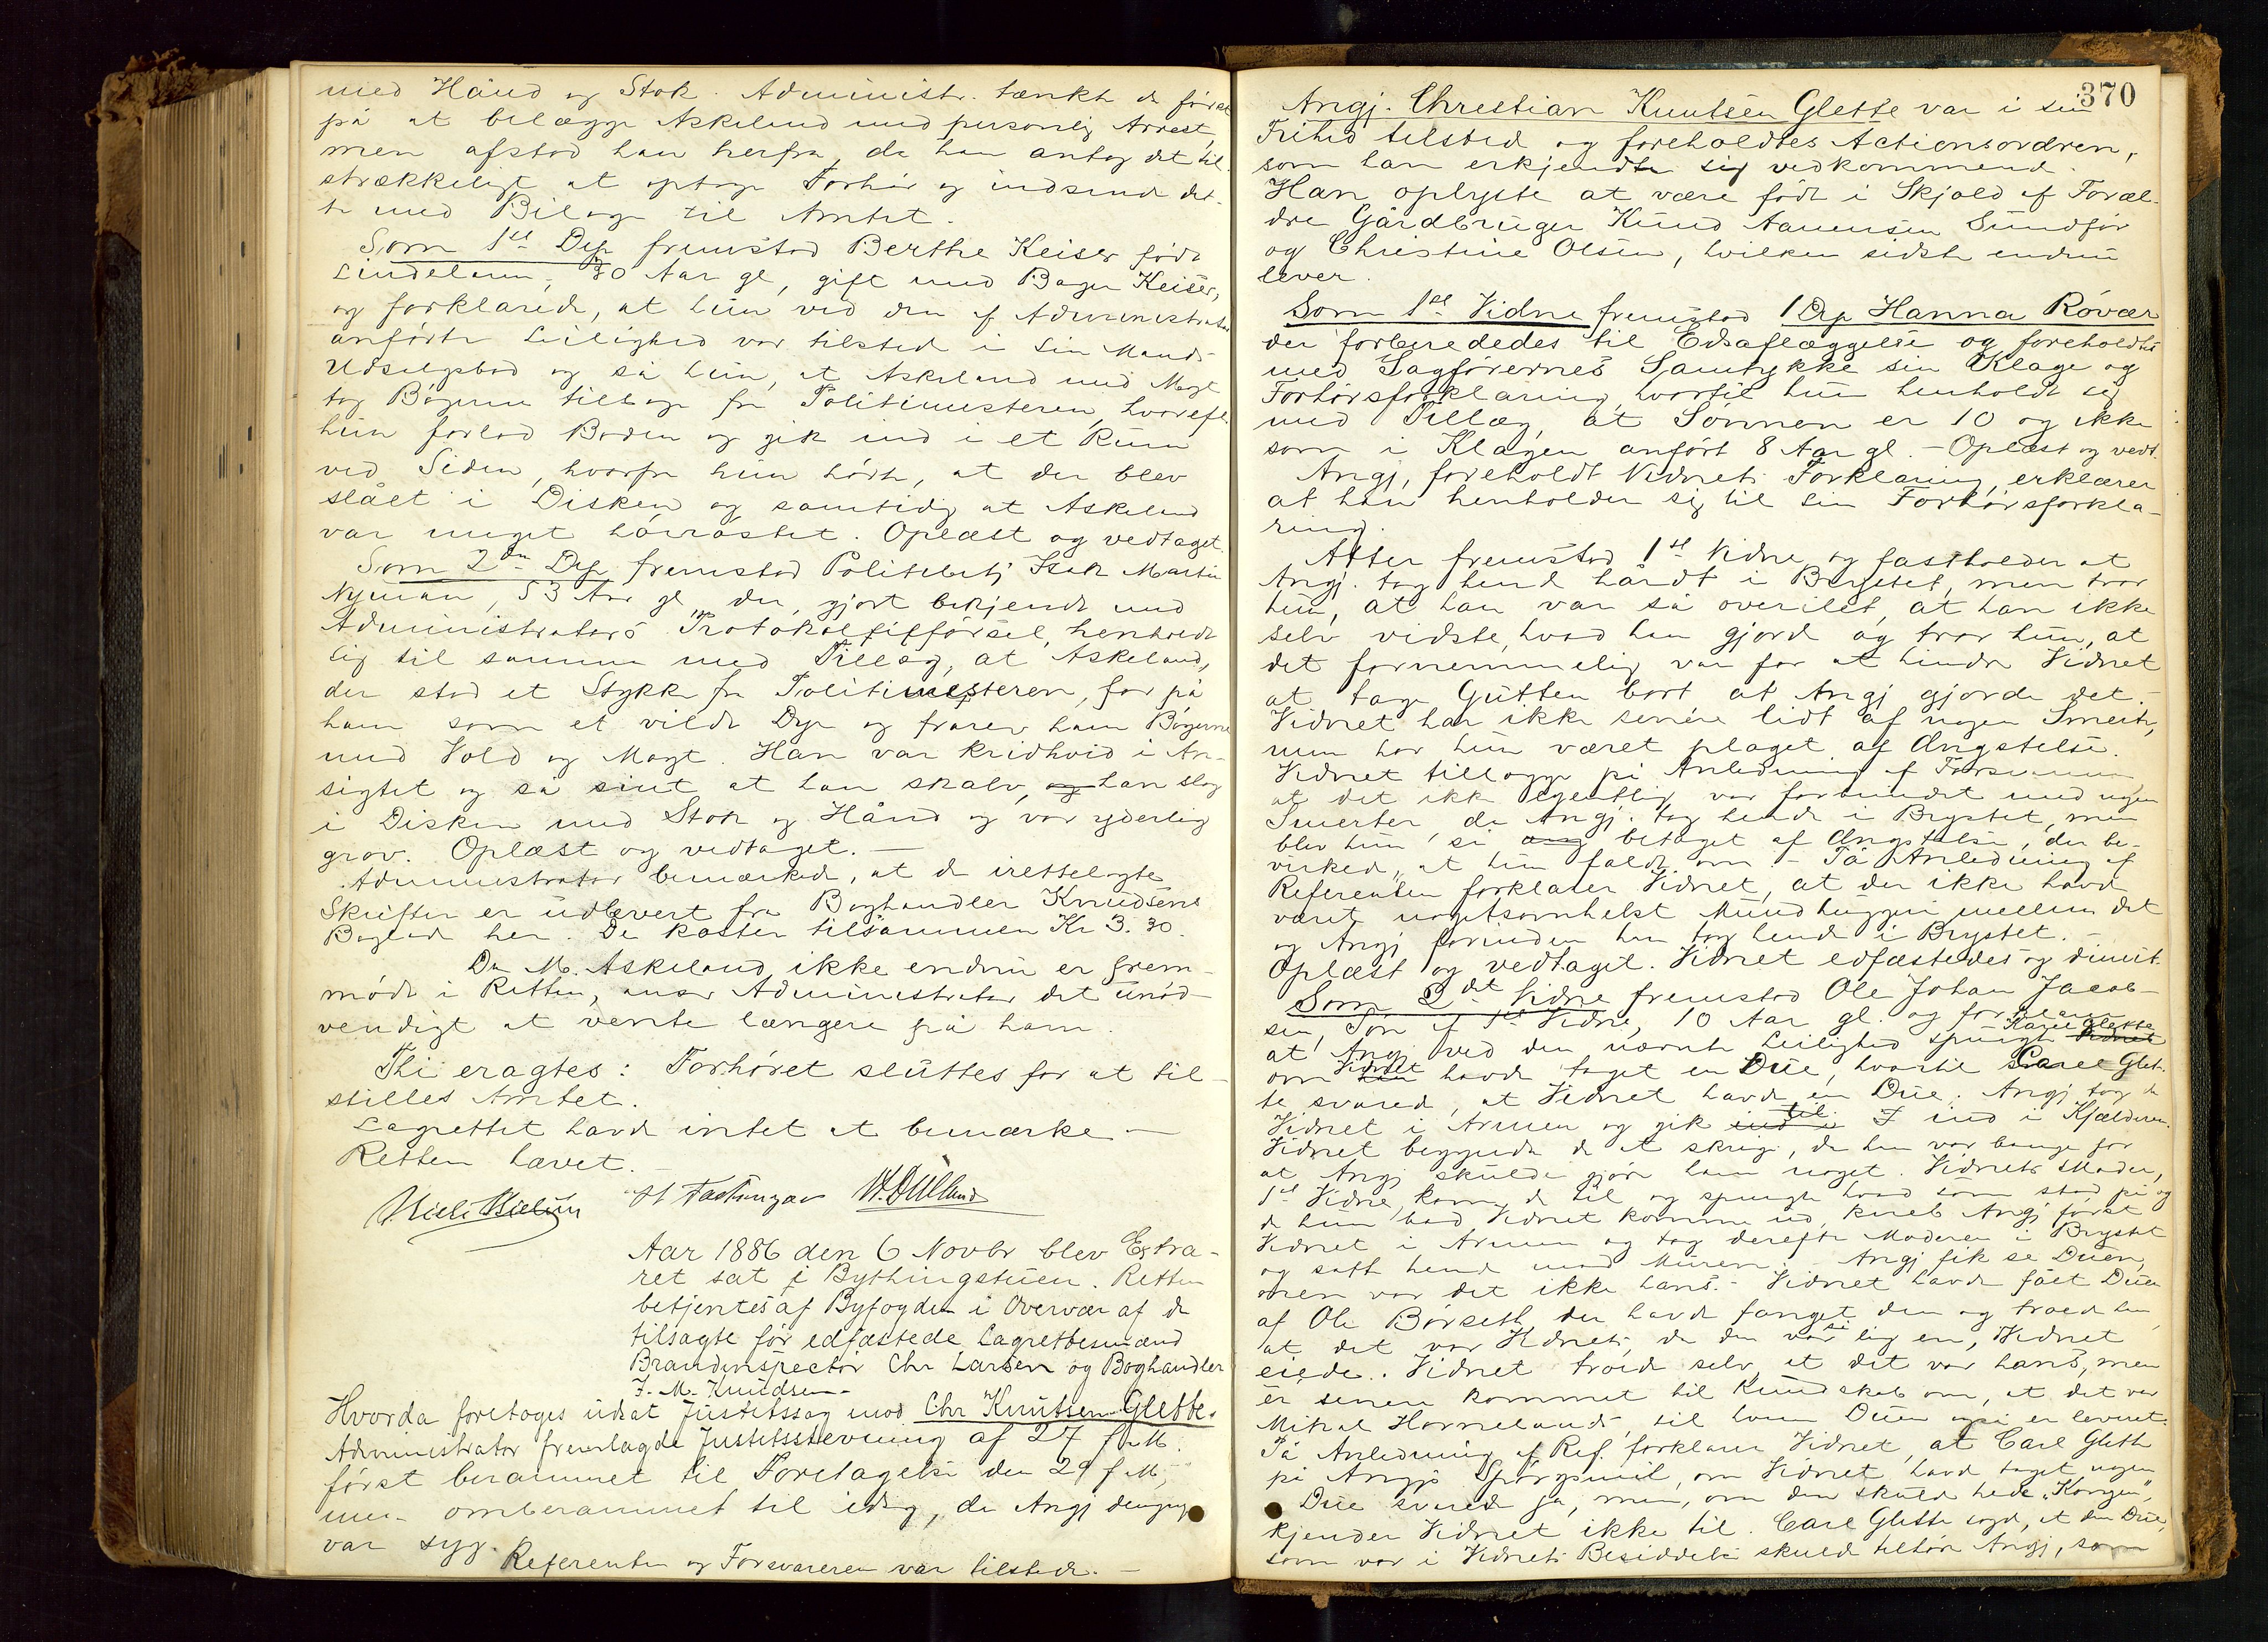 med Hånd og Stok. Administr. tænkte da først
på at belægge Askeland med personlig Arrest,
men afstod han herfra, da han antog det til-
strækkeligt at optage Forhør og indsende det-
te med Bilage til Amtet.
Som 1ste Dep fremstod Berthe Keiser født
Lindelann, 30 Aar gl, gift med Bager Keiser,
og forklarede, at hun ved den af Administrator
anførte Leilighed var tilstede i sin Mands
Udsalgsbod og så hun, at Askeland med Magt
tog Bøgerne tilbage fra Politimesteren, hvorefter
hun forlod Boden og gik ind i et Rum
ved Siden, hvorfra hun hørte, at der blev
slået i Disken og samtidig at Askeland
var meget høirøstet. Oplæst og vedtaget.
Som 2den Dep fremstod Politibetj Isak Martin
Nyman, 53 Aar gl, der, gjort bekjendt med
Administrators Protokoltilførsel, henholdt
sig til samme med Tillæg, at Askeland,
der stod et Stykke fra Politimesteren, for på
ham som et vildt Dyr og frarev ham Bøgerne
med Vold og Magt. Han var kridhvid i An-
sigtet og så sint at han skalv, og han slog
i Disken med Stok og Hånd og var yderlig
grov. Oplæst og vedtaget. —
Administrator bemærkede, at de irettelagte
Skrifter er udleveret fra Boghandler Knudsens
Boglade her. De koster tilsammen Kr 3.30.
Da M. Askeland ikke endnu er frem-
mødt i Retten, anser Administrator det unød-
vendigt at vente længere på ham.
Thi eragtes: Forhøret sluttes for at til-
stilles Amtet.
Lagrettet havde intet at bemærke —
Retten hævet.
Niels Nielsen H Tastungar
Aar 1886 den 6 Novbr blev Extra-
ret sat i Bythingstuen. Retten
betjentes af Byfogden i Overvær af de
tilsagte før edfæstede Lagrettesmænd
Brandinspectør Chr Larsen og Boghandler
J. M. Knudsen.
Hvorda foretoges udsat Justitssag mod Chr Knutsen Glette.
Administrator fremlagde Justitsstevning af 27 f. M.
først berammet til Foretagelse den 29 f M,
men omberammet til idag, da Angj dengang
var syg.
Referenten og Forsvareren var tilstede. —
370
Angj. Chrestian Knutsen Glette var i sin
Frihed tilsted og foreholdtes Actionsordren,
som han erkjendte sig vedkommende.
Han oplyste at være født i Skjold af Foræl-
dre Gårdbruger Knud Aanensen Sundfør
og Christine Olsen, hvilken sidste endnu
lever.
Som 1ste Vidne fremstod 1 Dep Hanna Røvær
der forberededes til Edsaflæggelse og foreholdtes
med Sagførernes Samtykke sin Klage og
Forhørsforklaring, hvortil hun henholdt sig
med Tillæg, at Sønnen er 10 og ikke
som i Klagen anført 8 Aar gl. – Oplæst og vedt.
Angj, foreholdt Vidnets Forklaring, erklærer
at han henholder sig til sin Forhørsforkla-
ring.
Atter fremstod 1ste Vidne og fastholder at
Angj. tog hende hårdt i Brystet, men tror
hun, at han var så overilet, at han ikke
selv vidste, hvad han gjorde og tror hun, at
det fornemmelig var for at hindre Vidnet
at tage Gutten bort at Angj gjorde det. –
Vidnet har ikke senere lidt af nogen Smerte,
men har hun været plaget af Ængstelse.
Vidnet tillægger på Anledning af Forsvareren
at det ikke egentlig var forbundet med nogen
Smerter, da Angj. tog hende i Brystet, men
blev hun så ang betaget af Ængstelse, der be-
virkede, at hun faldt om – På Anledning af
Referenten forklarer Vidnet, at der ikke havde
været nogetsomhelst Mundhuggeri mellem det
og Angj forinden han tog hende i Brystet. –
Oplæst og vedtaget. Vidnet edfæstedes og dimit.
Som 2det Vidne fremstod Ole Johan Jacob-
sen, Søn af 1ste Vidne, 10 Aar gl. og forklarer
at Angj ved den nævnte Leilighed spurgte Vidnet Karel Glette
om han Vidnet havde taget en Due, hvortil Carel Glet-
te svarede, at Vidnet havde en Due. Angj tog da
Vidnet i Armen og gik ind i til I ind i Kjælderen.
Vidnet begyndte da at skrige, da han var bange for
at Angj skulde gjøre ham noget. Vidnets Moder,
1ste Vidne, kom da til og spurgte hvad som stod på og
da hun bad Vidnet komme ud, kneb Angj først
Vidnet i Armen og tog derefter Moderen i Brystet
og satte hende mod Muren. Angj fik se Duen,
men var det ikke hans. – Vidnet havde fået Duen
af Ole Børseth, der havde fanget den og troede han
at det var Vidnets, da den var så lig en, Vidnet
eiede. Vidnet troede selv, at det var hans, men
er senere kommet til Kundskab om, at det var
Mikal Hornelands, til hvem Duen også er leveret.
På Anledning af Ref. forklarer Vidnet, at Carl Glette
på Angjs Spørgsmål, om Vidnet havde taget nogen
Due svarede ja, men, om den skulde hede „Kongen",
kjender Vidnet ikke til. Carl Glette sagde, at den Due,
som var i Vidnets Besiddelse skulde tilhøre Angj, som